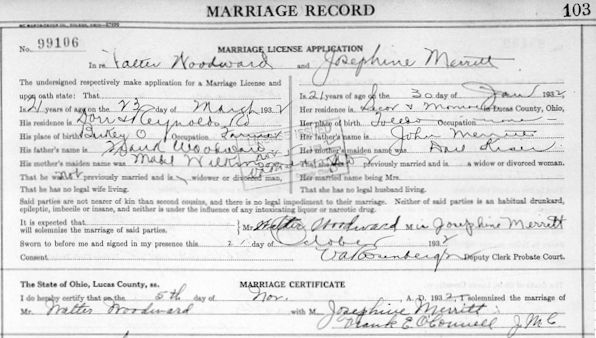 MARRIAGE RECORD
103
No. 99106
MARRIAGE LICENSE APPLICATION
In re Walter Woodward and Josephine Merritt
The undersigned respectively make application for a Marriage License and
upon oath state: That
Is 21 years of age on the 23 day of March 1932
His residence is Dorr & Reynolds Rd
His place of birth Occupation Farmer
His father's name is Woodward
His mother's maiden name was Mabel
That he was not previously married and is widower or divorced man,
That he has no legal wife living.
Is 21 years of age on the 30 day of Jan 1932
Her residence is & Monroe is Lucas County, Ohio,
Her place of birth. Toledo Occupation none
Her father's name is John Merritt
Her mother's maiden name was
That she previously married and is a widow or divorced woman.
Her married name being Mrs.
That she has no legal husband living.
Said parties are not nearer of kin than second cousins, and there is no legal impediment to their marriage. Neither of said parties is an habitual drunkard,
epileptic, imbecile or insane, and neither is under the influence of any intoxicating liquor or narcotic drug.
It is expected that
will solemnize the marriage of said parties.
Mr Walter Woodward M iss Josephine Merritt
Sworn to before me and signed in my presence this day of October 1932
Consent Deputy Clerk Probate Court.
The State of Ohio, Lucas County, ss. MARRIAGE CERTIFICATE
I do hereby certify that on the 5th day of Nov. A. D. 1932, I solemnized the marriage of
Mr. Walter Woodward with M Josephine Merritt
Frank E. O'Connell J.M.C.